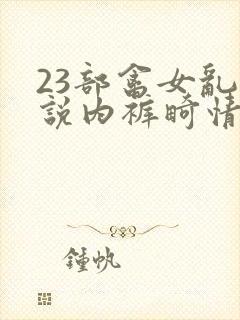 23部畜女亂
說内裤畸情
鍾帆